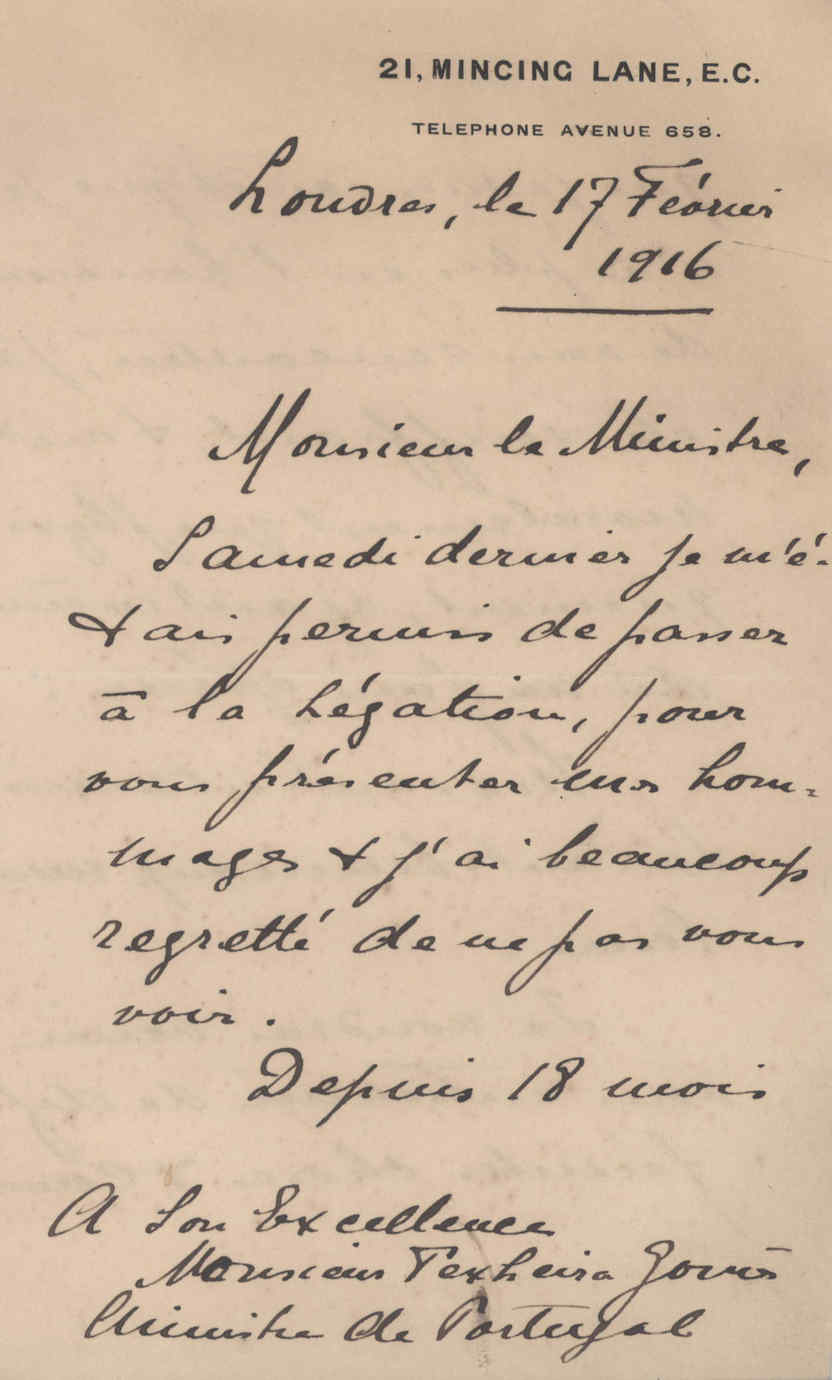 21, MINCING LANE, E.C.
TELEPHONE AVENUE 658.
Londres, le 17 Février
1916
Monsieur le Ministre,
Samedi dernier je m'é-
tais permis de passer
à la Légation, pour
vous présenter mes hom=
mages & j'ai beaucoup
regretté de ne pas vous
voir.
Depuis 18 mois
A Son Excellence
Monsieur Texheira Gomès
Ministre de Portugal